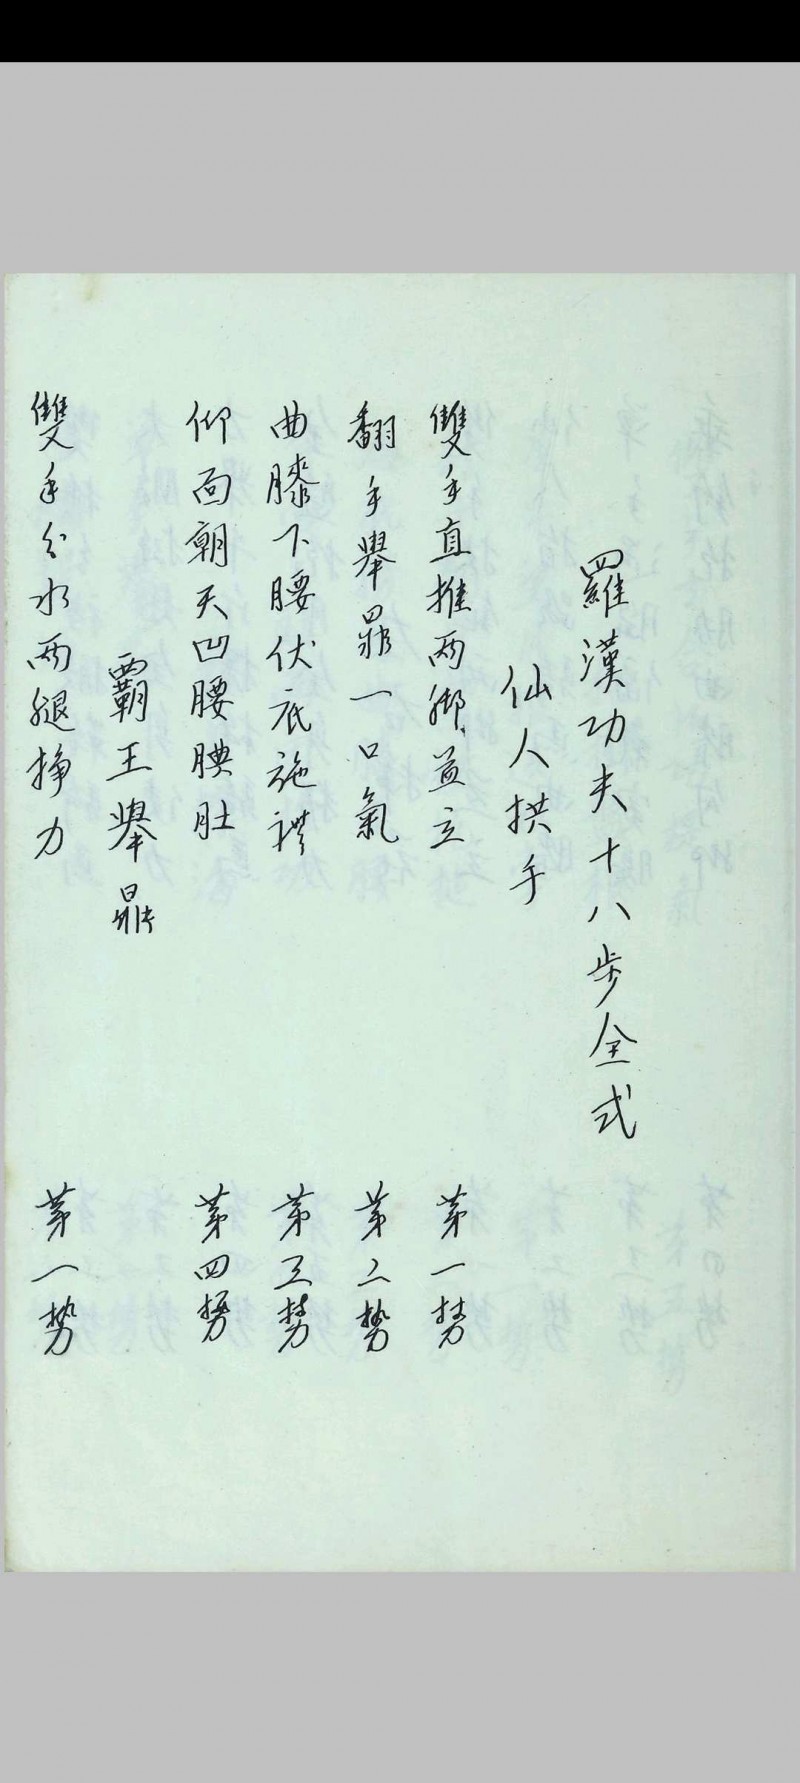 羅漢功夫十八步全式
仙人拱手
雙手直推兩脚並立 第一势
翻手舉鼎一口氣 第二势
曲膝下腰伏底施禮 第三势
仰面朝天凹腰腆肚 第四势
霸王舉鼎
雙手分水兩腿掙力 第一势